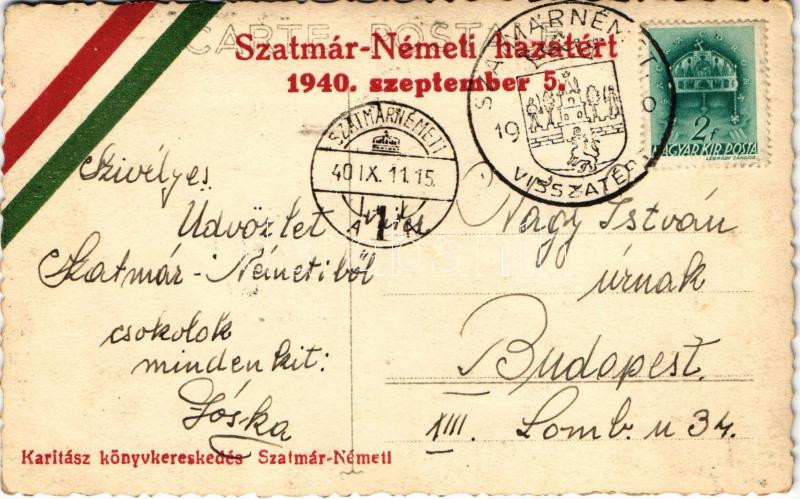 CARTE POSTALE
Szatmár-Németi hazatért
1940. szeptember 5.
SZATMÁRNÉMETI
1940
VISSZATÉRT
2f
MAGYAR KIR. POSTA
LÉGRÁDY SÁNDOR.
SZATMÁRNÉMETI
40 IX. 11. 15.
1
Szivélyes
Üdvözlet
Szatmár-Németiből
csokolok
mindenkit:
Jóska
Nagy István
úrnak
Budapest.
XIII. Lomb. u 34.
Karitász könyvkereskedés Szatmár-Németi